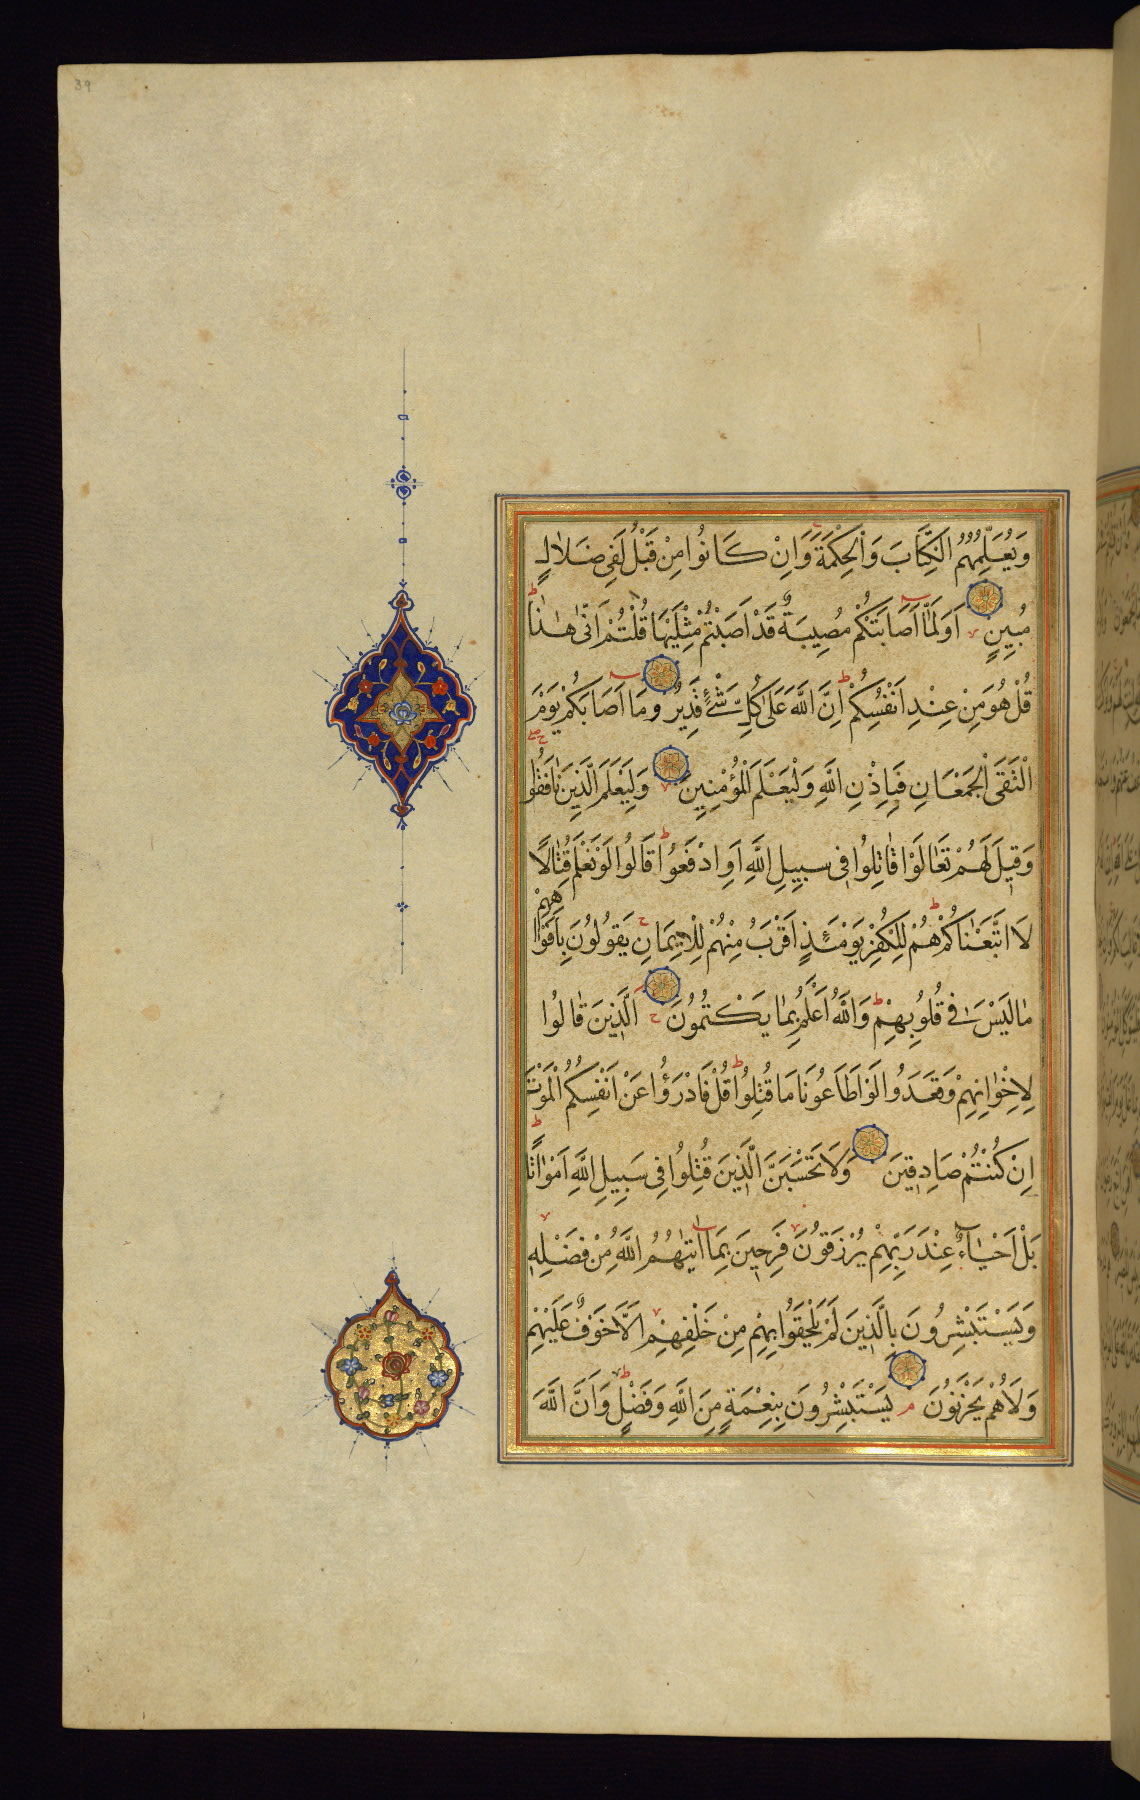 39
وَيُعَلِّمُهُمُ الْكِتَابَ وَالْحِكْمَةَ وَاِنْ كَانُوا مِنْ قَبْلُ لَفِى ضَلَالٍ
مُبِينٍ اَوَلَمَّا اَصَابَتْكُمْ مُصِيبَةٌ قَدْ اَصَبْتُمْ مِثْلَيْهَا قُلْتُمْ اَنّٰى هٰذَا
قُلْ هُوَ مِنْ عِنْدِ اَنْفُسِكُمْ اِنَّ اللّٰهَ عَلٰى كُلِّ شَيْءٍ قَدِيرٌ وَمَا اَصَابَكُمْ يَوْمَ
الْتَقَى الْجَمْعَانِ فَبِاِذْنِ اللّٰهِ وَلِيَعْلَمَ الْمُؤْمِنِينَ وَلِيَعْلَمَ الَّذِينَ نَافَقُوا
وَقِيلَ لَهُمْ تَعَالَوْا قَاتِلُوا فِى سَبِيلِ اللّٰهِ اَوِ ادْفَعُوا قَالُوا لَوْ نَعْلَمُ قِتَالًا
لَا اتَّبَعْنَاكُمْ هُمْ لِلْكُفْرِ يَوْمَئِذٍ اَقْرَبُ مِنْهُمْ لِلْاِيمَانِ يَقُولُونَ بِاَفْوَاهِهِمْ
مَا لَيْسَ فِى قُلُوبِهِمْ وَاللّٰهُ اَعْلَمُ بِمَا يَكْتُمُونَ اَلَّذِينَ قَالُوا
لِاِخْوَانِهِمْ وَقَعَدُوا لَوْ اَطَاعُونَا مَا قُتِلُوا قُلْ فَادْرَؤُا عَنْ اَنْفُسِكُمُ الْمَوْتَ
اِنْ كُنْتُمْ صَادِقِينَ وَلَا تَحْسَبَنَّ الَّذِينَ قُتِلُوا فِى سَبِيلِ اللّٰهِ اَمْوَاتًا
بَلْ اَحْيَاءٌ عِنْدَ رَبِّهِمْ يُرْزَقُونَ فَرِحِينَ بِمَا اٰتٰيهُمُ اللّٰهُ مِنْ فَضْلِهِ
وَيَسْتَبْشِرُونَ بِالَّذِينَ لَمْ يَلْحَقُوا بِهِمْ مِنْ خَلْفِهِمْ اَلَّا خَوْفٌ عَلَيْهِمْ
وَلَا هُمْ يَحْزَنُونَ يَسْتَبْشِرُونَ بِنِعْمَةٍ مِنَ اللّٰهِ وَفَضْلٍ وَاَنَّ اللّٰهَ